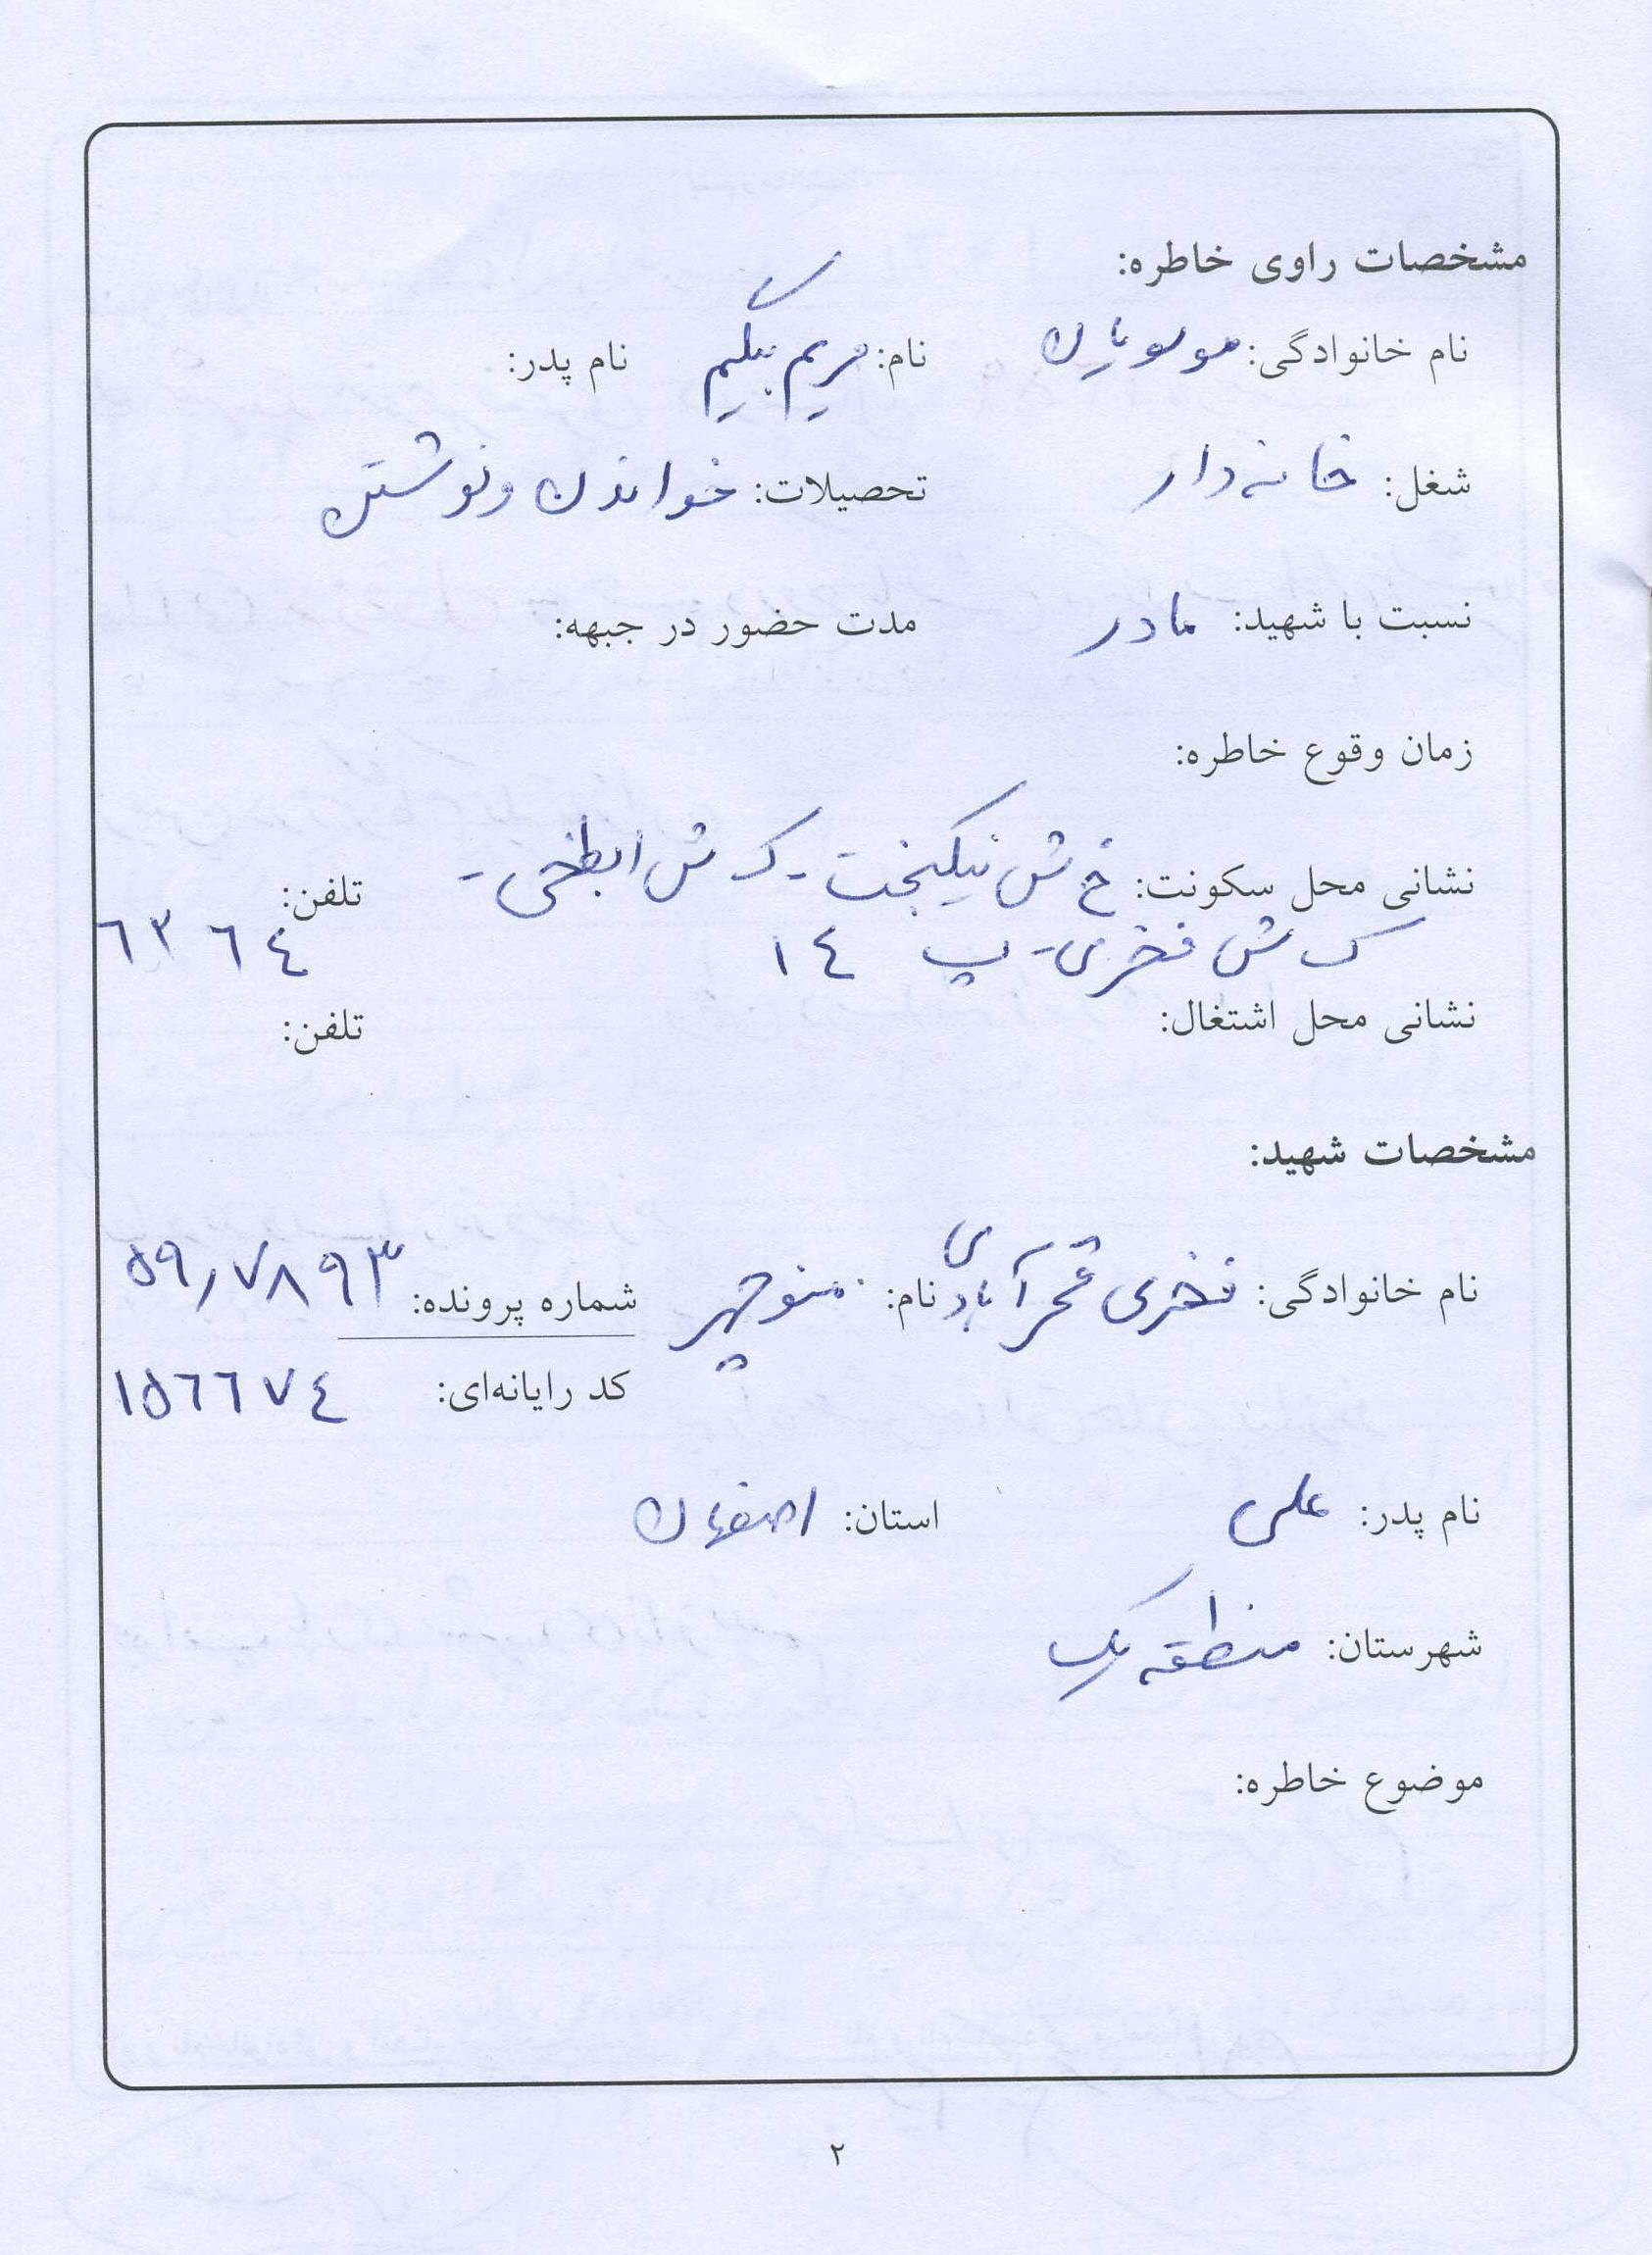 مشخصات راوی خاطره:
نام خانوادگی: موسویان نام: مریم بیگم نام پدر:
شغل: خانه دار تحصیلات: خواندن و نوشتن
نسبت با شهید: مادر مدت حضور در جبهه:
زمان وقوع خاطره:
نشانی محل سکونت: خ ش نیکبخت - ک ش ابطحی - تلفن:
ک ش فخری - پ ١٤ ٦٣٦٤
نشانی محل اشتغال: تلفن:
مشخصات شهید:
نام خانوادگی: فخری آبادی نام: منوچهر شماره پرونده: ٥٩/٧٨٩٣
کد رایانه‌ای: ١٥٦٦٧٤
نام پدر: علی استان: اصفهان
شهرستان: منطقه یک
موضوع خاطره:
٢